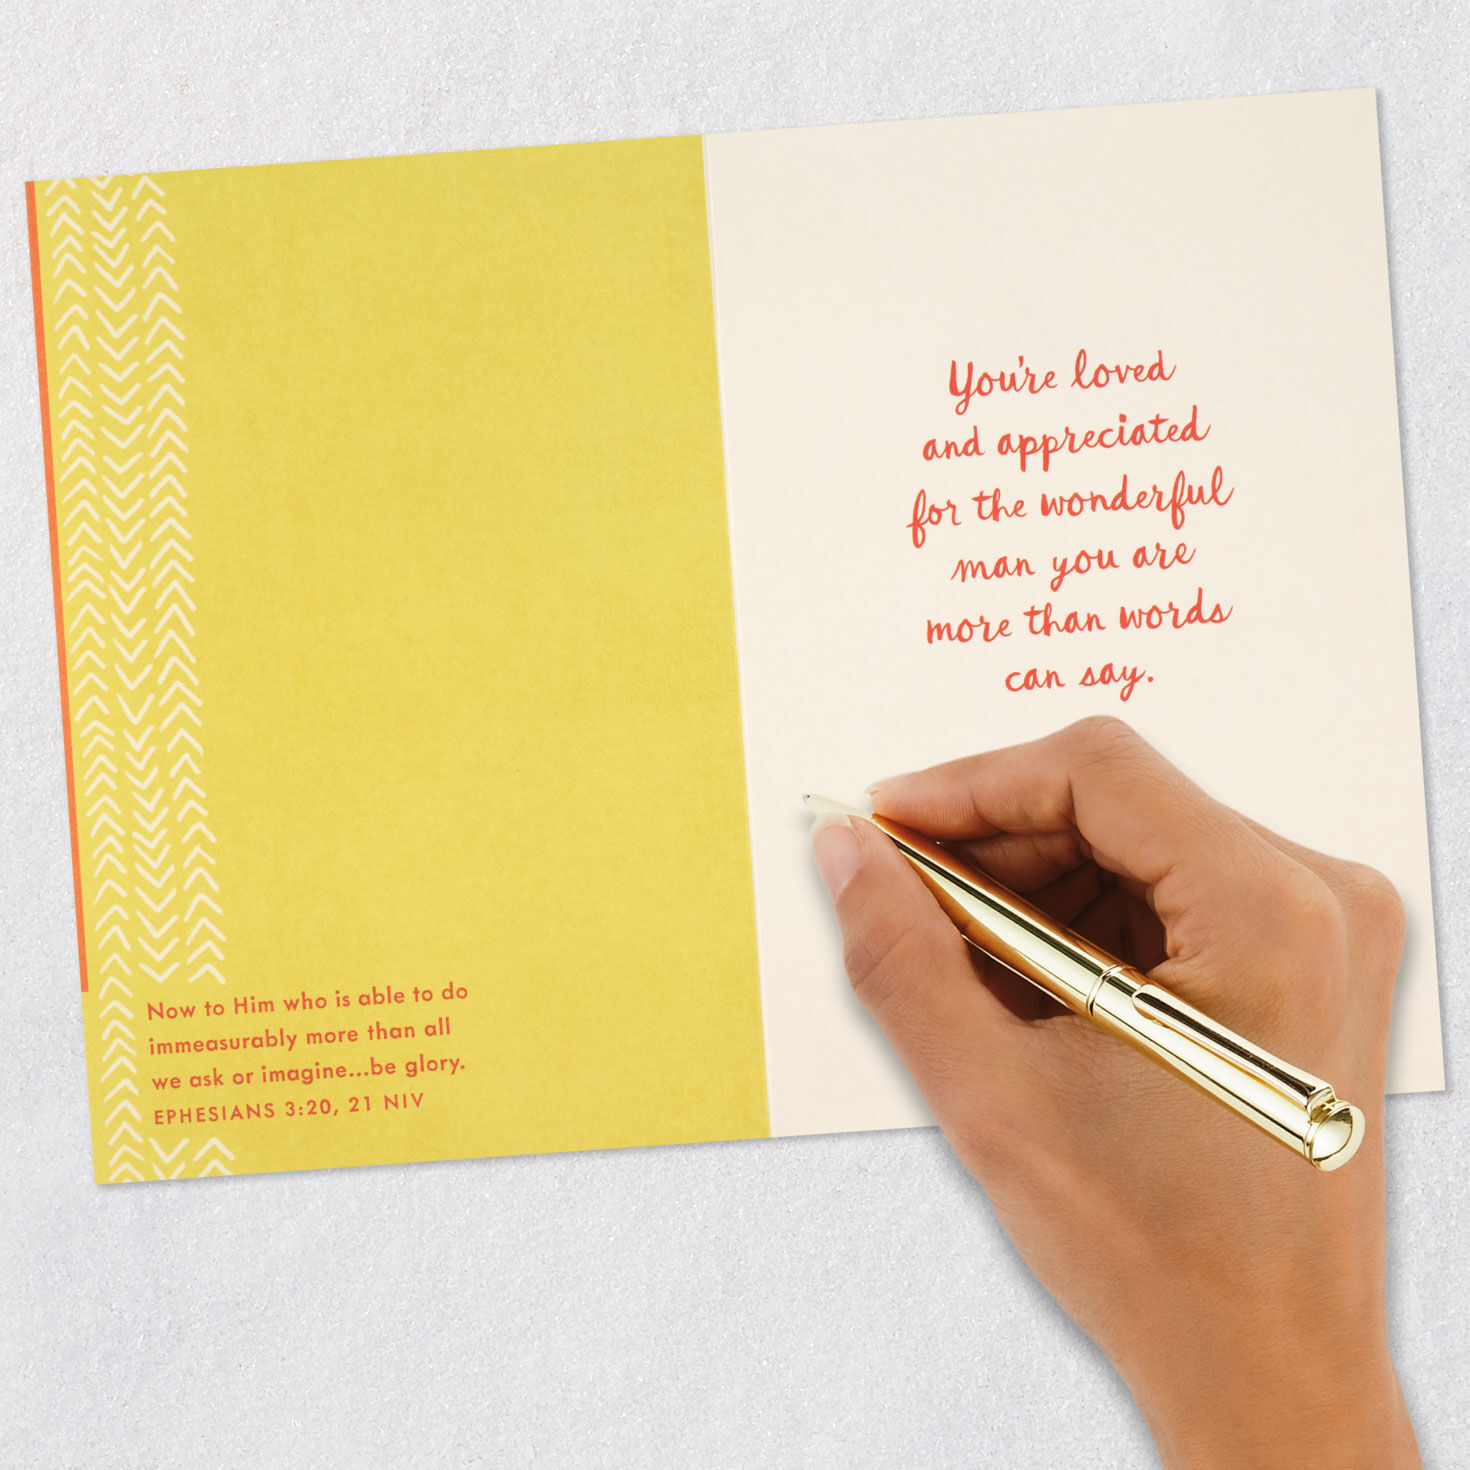 Now to Him who is able to do
immeasurably more than all
we ask or imagine...be glory.
EPHESIANS 3:20, 21 NIV
You're loved
and appreciated
for the wonderful
man you are
more than words
can say.